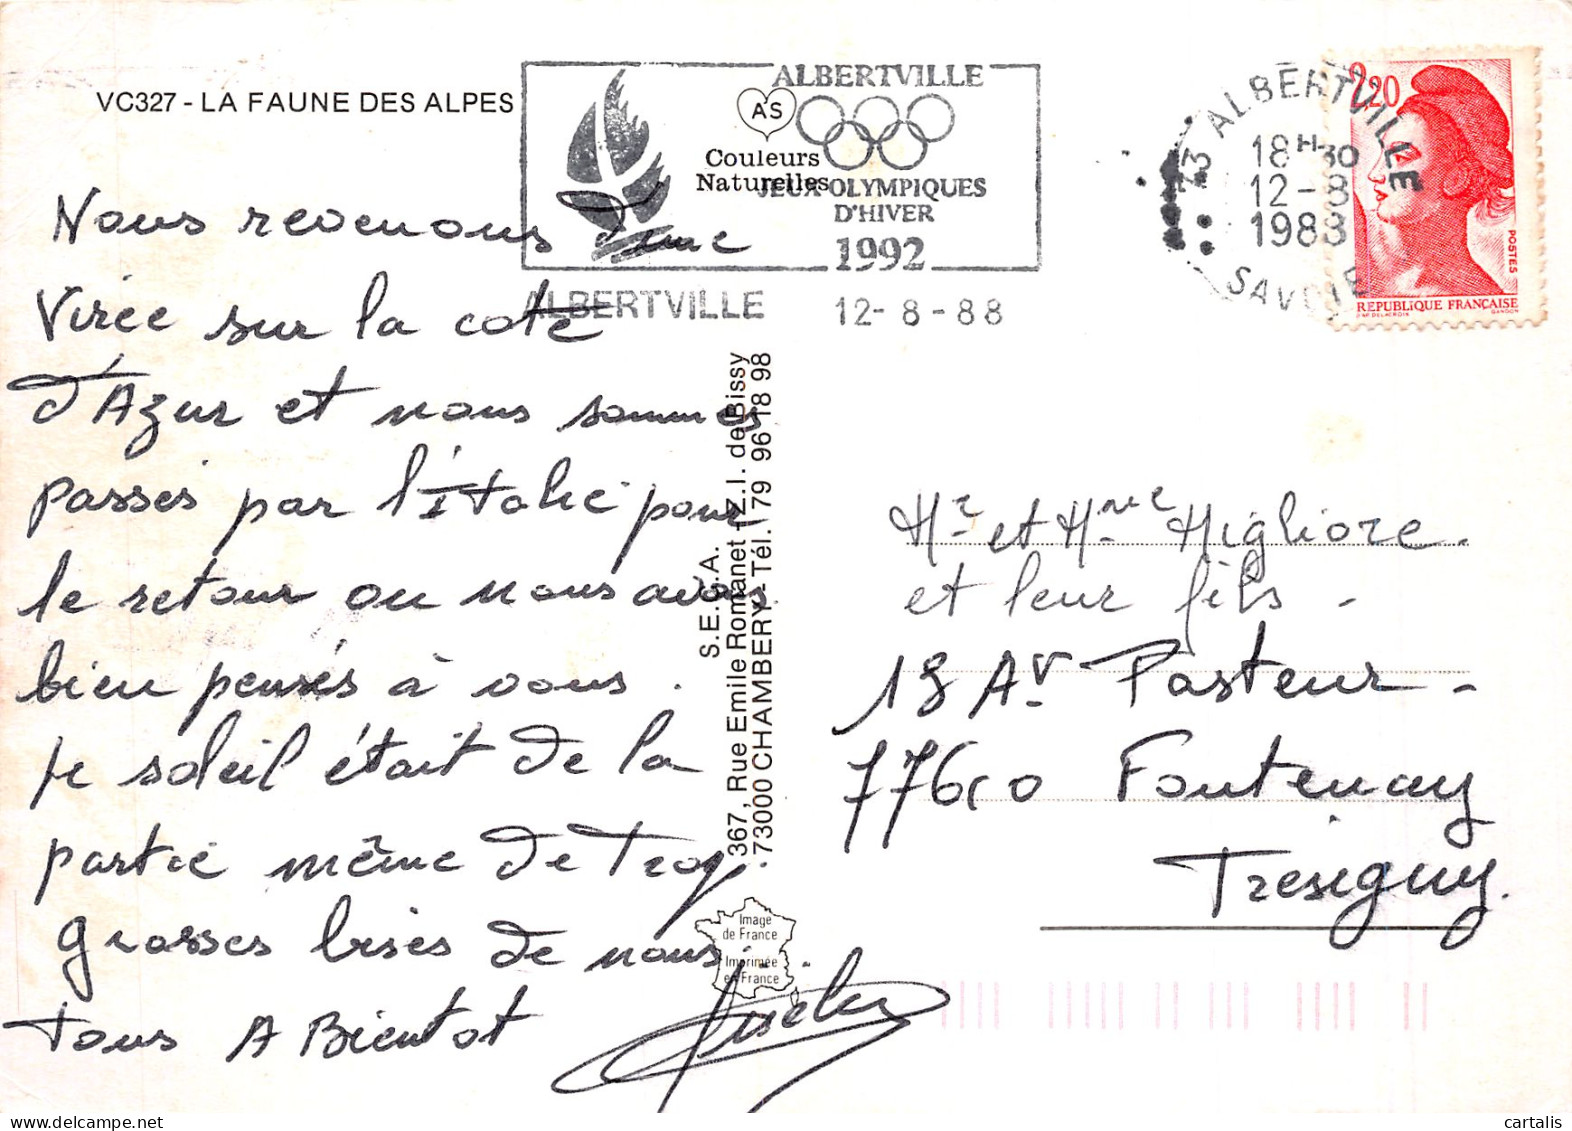 VC327 - LA FAUNE DES ALPES
ALBERTVILLE
AS
Couleurs
Naturelles
JEUX OLYMPIQUES
D'HIVER
1992
ALBERTVILLE 12-8-88
73 ALBERTVILLE
18H30
12-8
1988
SAVOIE
2,20
POSTES
REPUBLIQUE FRANÇAISE
D'AP. DELACROIX GANDON
Nous revenons d'une
Virée sur la cote
d'Azur et nous sommes
passés par l'Italie pour
le retour ou nous avons
bien pensés à vous.
le soleil était de la
partie même de trop.
grosses bises de nous
tous A Bientot
S.E.C.A.
367, Rue Emile Romanet - Z.I. de Bissy
73000 CHAMBERY - Tél. 79 96 18 98
Image
de France
Imprimée
en France
Mr et Mme Migliore.
et leur fils -
18 Av Pasteur -
77610 Fontenay
Tresigny.
cartalis
www.delcampe.net